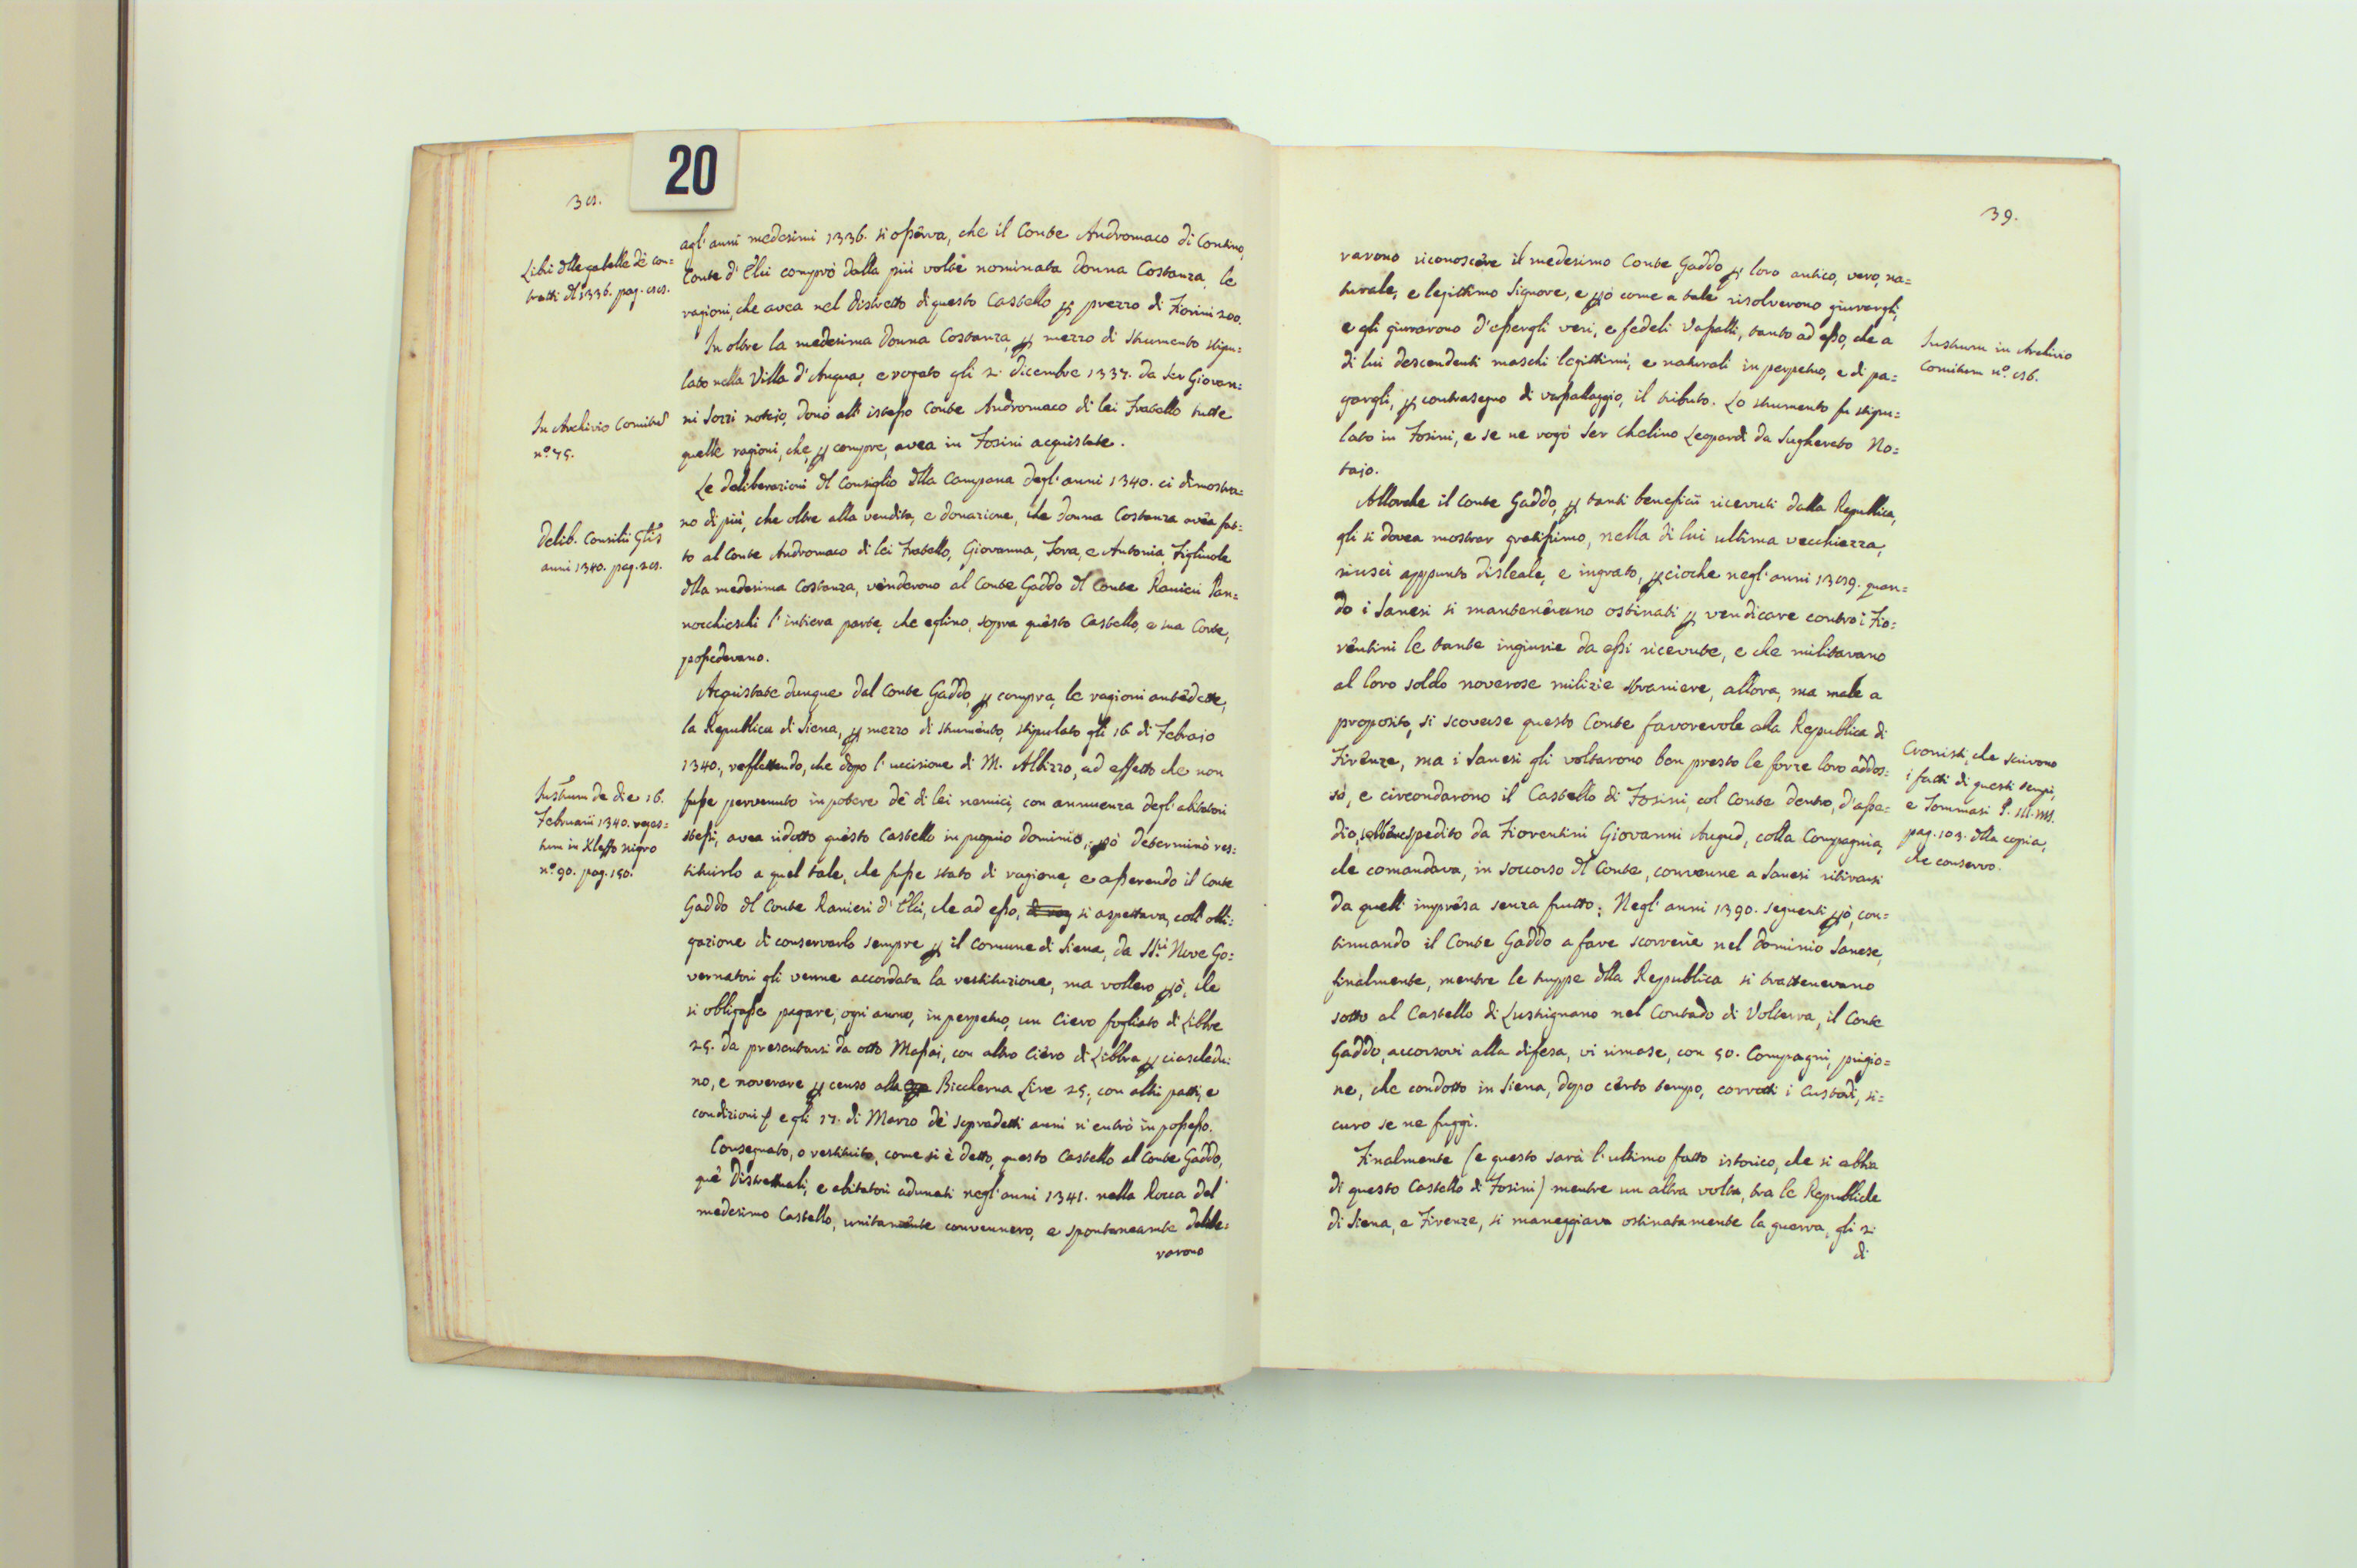 20
38.
agl'anni medesimi 1336. si osserva, che il Conte Andromaco di Contino,
Conte d'Elci comprò dalla più volte nominata Donna Costanza, le
ragioni, che avea nel distretto di questo Castello p prezzo di Fiorini 200.
In oltre la medesima Donna Costanza, p mezzo di strumento stipu=
lato nella Villa d'Anqua, e rogato gli 2. dicembre 1337. da Ser Giovan=
ni Sozzi notajo, donò all'istesso Conte Andromaco di lei Fratello tutte
quelle ragioni, che, p compre, avea in Fosini acquistate.
Le deliberazioni dl Consiglio dlla Campana degl'anni 1340. ci dimostra=
no di più, che oltre alla vendita, e donazione, che donna Costanza avea fat=
to al Conte Andromaco di lei Fratello, Giovanna, Tora, e Antonia Figliuole
dlla medesima Costanza, venderono al Conte Gaddo dl Conte Ranieri Pan=
nocchieschi l'intiera parte, che eglino, sopra questo Castello, e sua Corte,
possedevano.
Acquistate dunque dal Conte Gaddo, p compra, le ragioni antedette,
la Republica di Siena, p mezzo di strumento, stipulato gli 16 di Febraio
1340., reflettendo, che dopo l'uccisione di M. Albizzo, ad effetto che non
fusse pervenuto in potere de' di lei nemici, con annuenza degl'abitatori
stessi, avea ridotto questo Castello in proprio dominio, pò determinò res=
tituirlo a quel tale, che fusse stato di ragione, e asserendo il Conte
Gaddo dl Conte Ranieri d'Elci, che ad esso, si aspettava, coll'obli=
gazione di conservarlo sempre p il Comune di Siena, da SS.i Nove Go=
vernatori gli venne accordata la restituzione, ma vollero pò, che
si obligasse pagare, ogni anno, in perpetuo, un Ciero fogliato di Libbre
25. da presentarsi da otto Massai, con altro Ciero di Libbra p ciaschedu=
no, e noverare p censo alla Biccherna Lire 25., con altri patti, e
condizioni, e gli 17. di Marzo de' sopradetti anni n'entrò in possesso.
Consegnato, o restituito, come si è detto, questo Castello al Conte Gaddo,
que' Distrettuali, e abitatori adunati negl'anni 1341. nella Rocca del
medesimo Castello, unitamente convennero, e spontaneamte delibe=
rarono
Libri dlle gabelle de' con=
tratti dl 1336. pag. 88.
In Archivio Comitud
n.º 75.
Delib. Consilii Glis
anni 1340. pag. 28.
Instrum de die 16.
Februarii 1340. reges=
trum in Kleffo nigro
n.º 90. pag. 150.
39.
rarono riconoscere il medesimo Conte Gaddo p loro antico, vero, na=
turale, e legittimo Signore, e pò come a tale risolverono giurargli,
e gli giurarono d'essergli veri, e fedeli Vassalli, tanto ad esso, che a
di lui descendenti maschi legittimi, e naturali in perpetuo, e di pa=
gargli, p contrasegno di vassallaggio, il tributo. Lo strumento fu stipu=
lato in Fosini, e se ne rogò Ser Chelino Leopardi da Sughereto No=
tajo.
Allorche il Conte Gaddo, p tanti beneficii ricevuti dalla Republica,
gli si dovea mostrar gratissimo, nella di lui ultima vecchiezza,
riuscì appunto disleale, e ingrato, pcioche negl'anni 1389. quan=
do i Sanesi si mantenevano ostinati p vendicare contro i Fio=
rentini le tante ingiurie da essi ricevute, e che militavano
al loro soldo noverose milizie straniere, allora, ma male a
proposito, si scoverse questo Conte favorevole alla Republica di
Firenze, ma i Sanesi gli voltarono ben presto le forze loro addos=
so, e circondarono il Castello di Fosini, col Conte dentro, d'asse=
dio, sebbene spedito da Fiorentini Giovanni Augud, colla Compagnia,
che comandava, in soccorso dl Conte, convenne a Sanesi ritirarsi
da quell'impresa senza frutto. Negl'anni 1390. seguenti pò, con=
tinuando il Conte Gaddo a fare scorrerie nel dominio Sanese,
finalmente, mentre le truppe dlla Republica si trattenevano
sotto al Castello di Lustignano nel Contado di Volterra, il Conte
Gaddo, accorsovi alla difesa, vi rimase, con 50. Compagni, prigio=
ne, che condotto in Siena, dopo certo tempo, corrotti i Custodi, si=
curo se ne fuggì.
Finalmente (e questo sarà l'ultimo fatto istorico, che si abbia
di questo Castello di Fosini) mentre un altra volta, tra le Republiche
di Siena, e Firenze, si maneggiava ostinatamente la guerra, gli 2
di
Instrum in Archivio
Comitum n.º 86.
Cronisti, che scrivono
i fatti di questi tempi,
e Tommasi P. III. MS.
pag. 103. dlla copia,
che conservo.